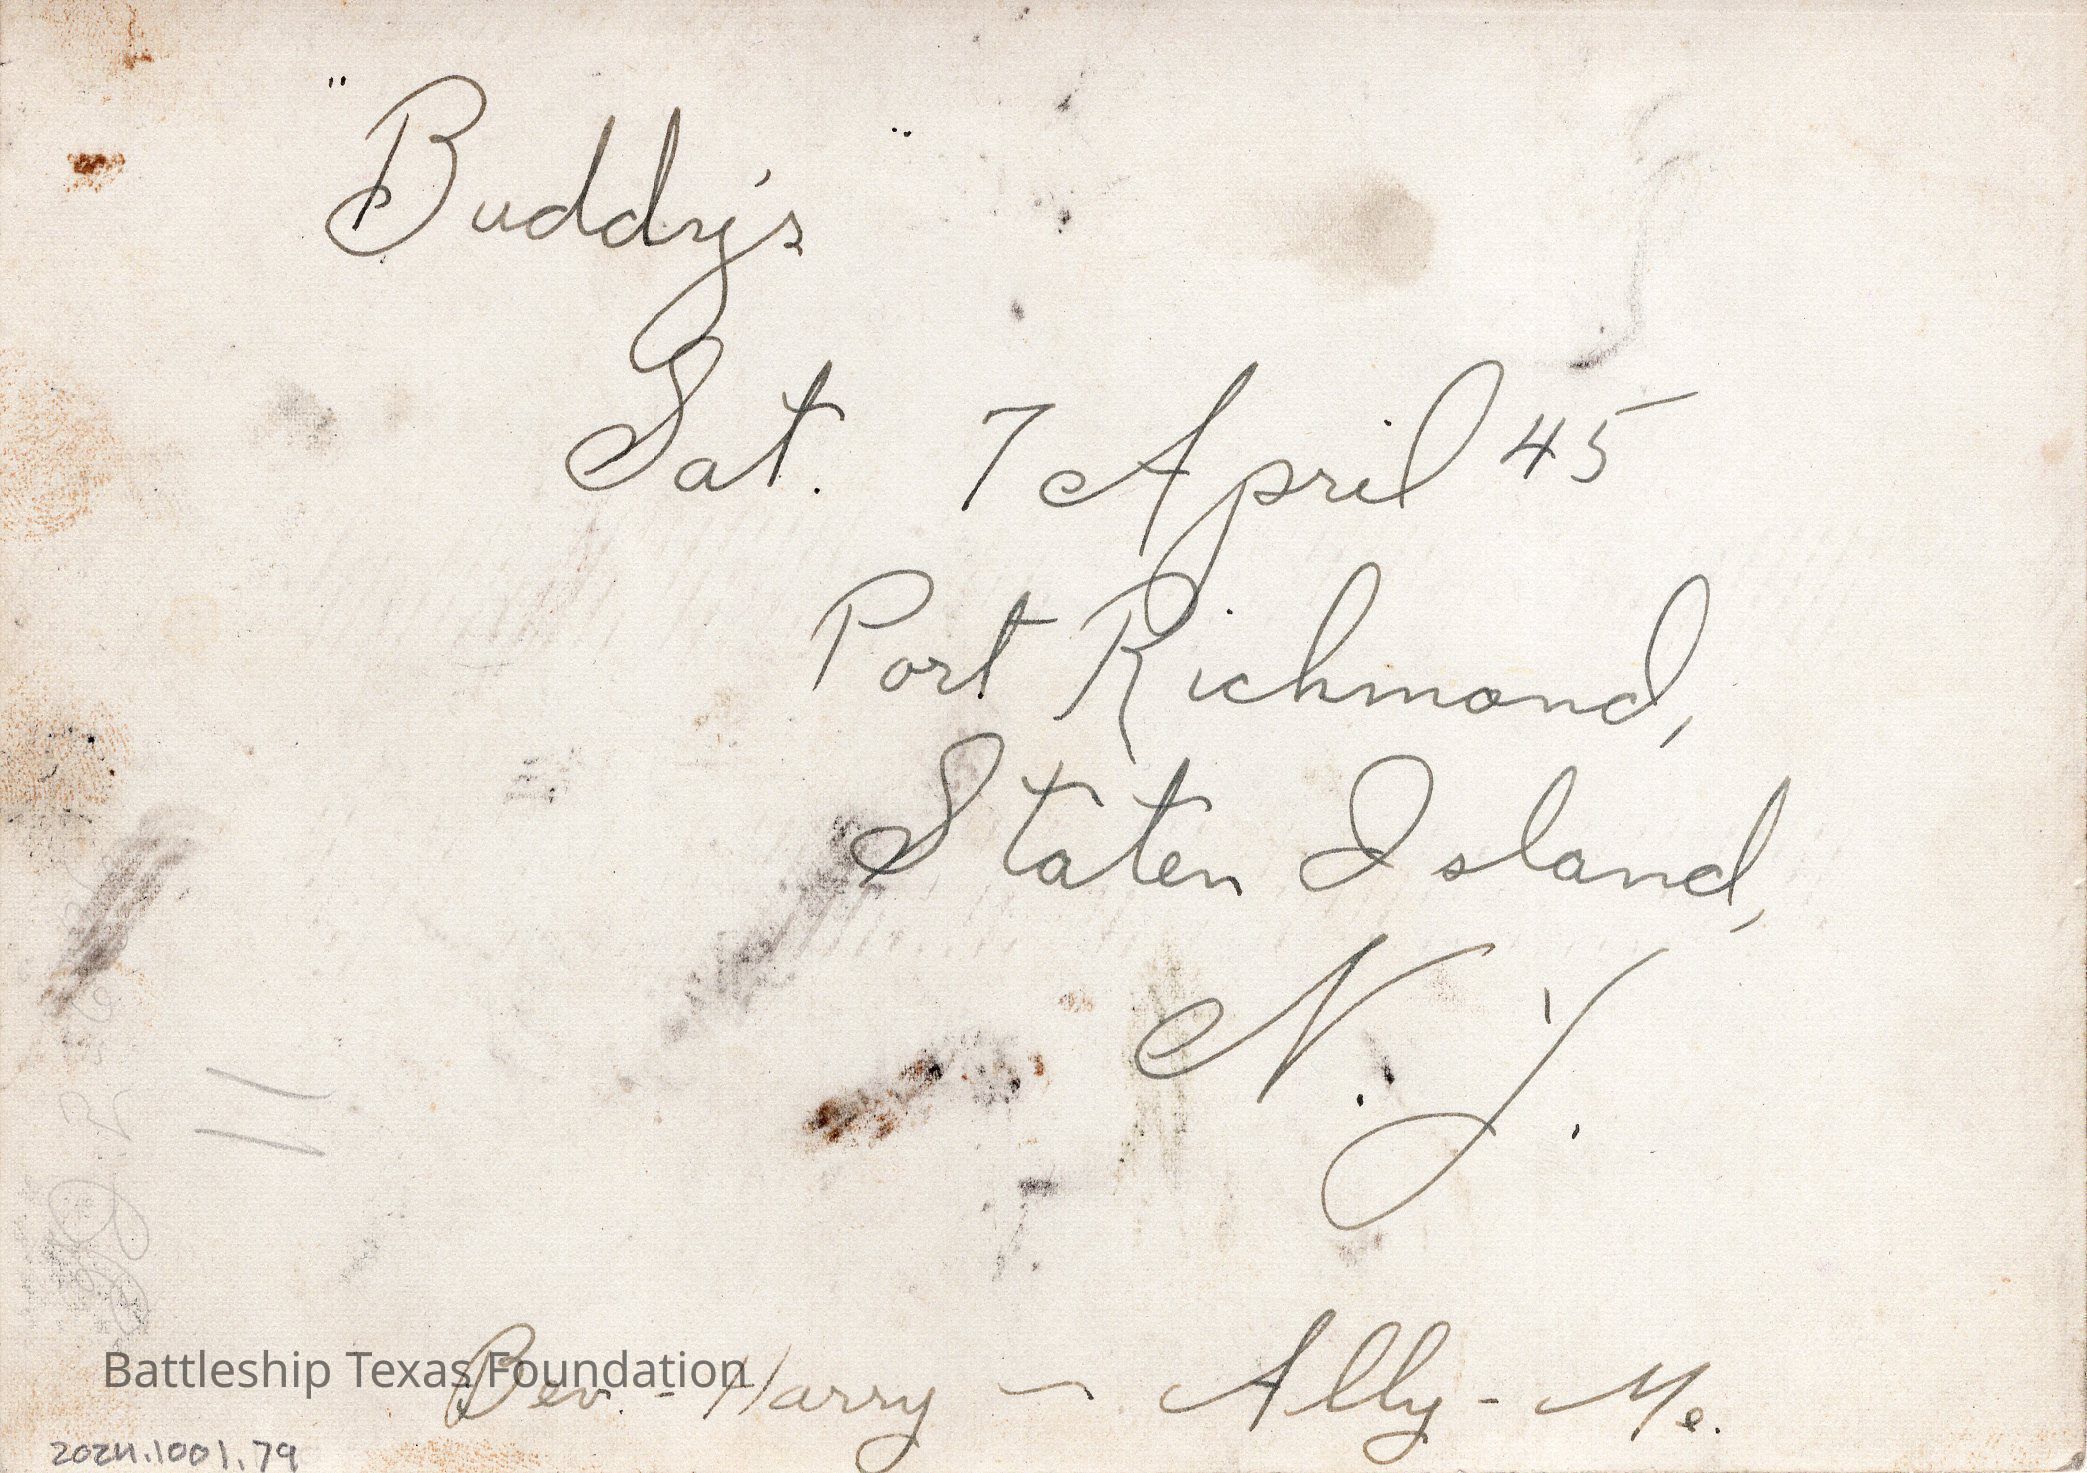 "Buddy's"
Sat. 7 April 45
Port Richmond,
Staten Island,
N.Y.
Bev. - Harry - Ally - Me.
Battleship Texas Foundation
2024.1001.79